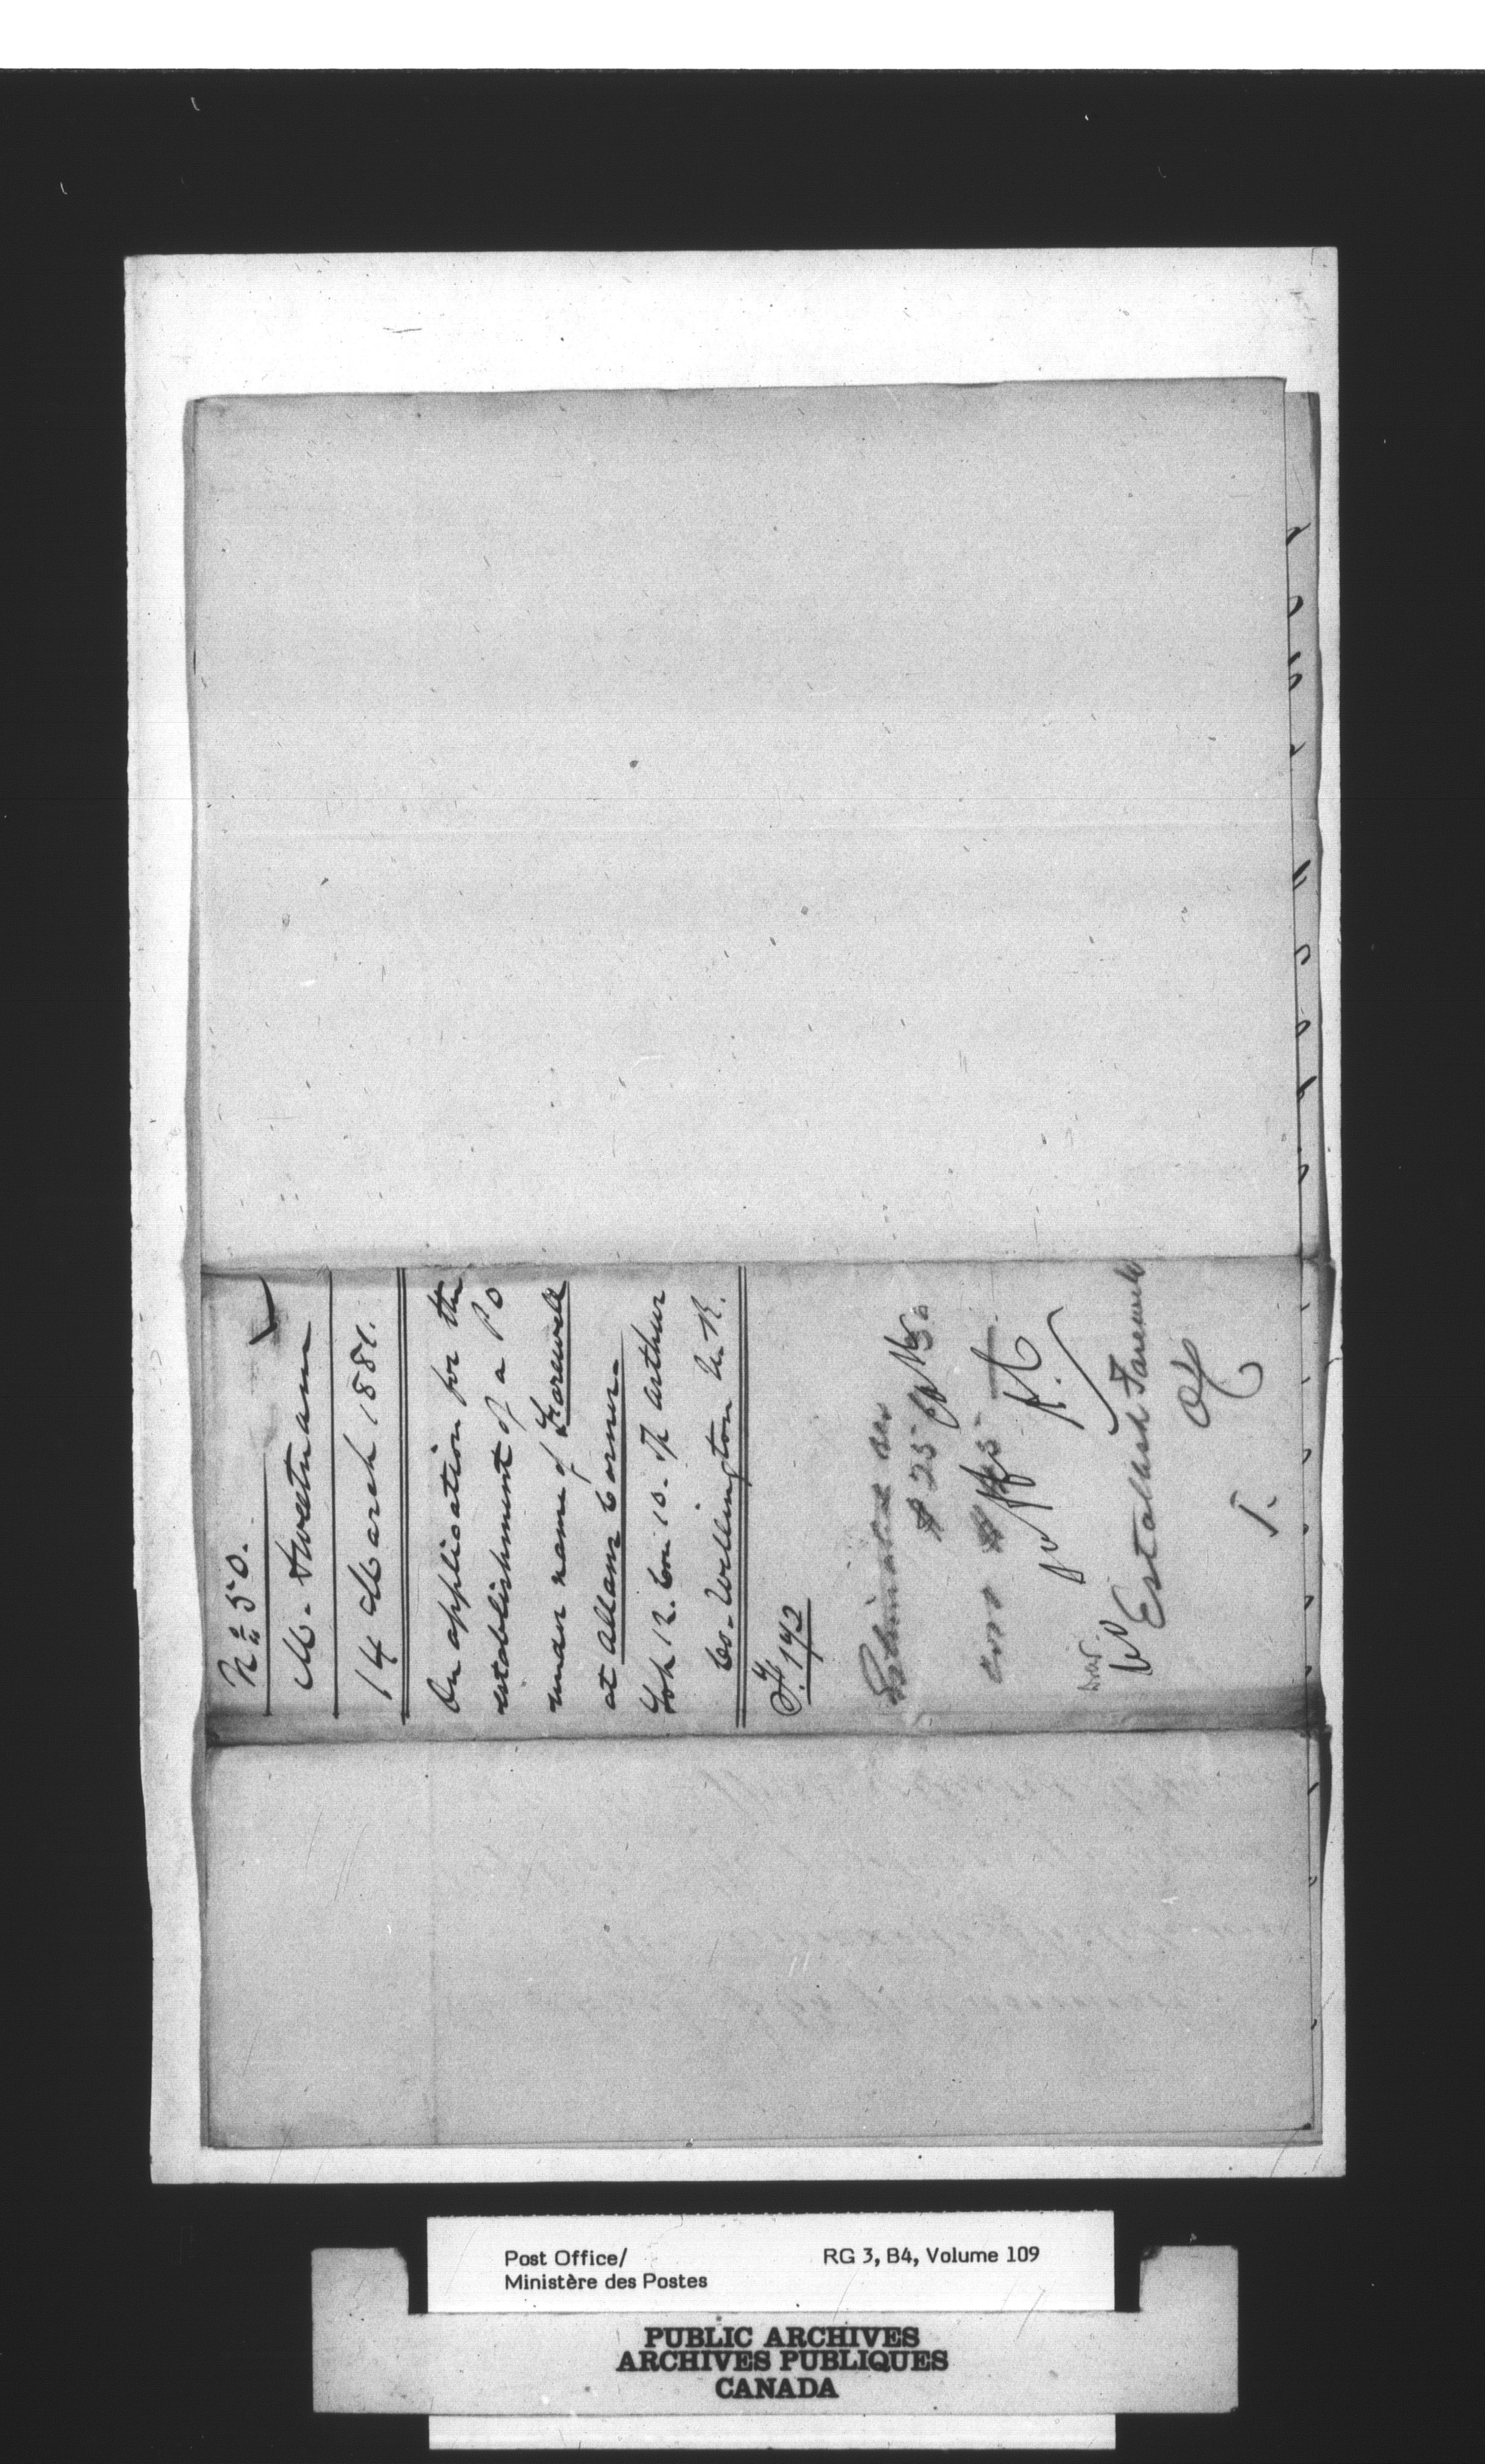 No 50.
M. Sweetnam
14 March 1881.
On application for the
establishment of a P O
under name of Farewell
at Allans Corners
Lot 12. Con 10. Tp Arthur
Co. Wellington N. R.
F. 172
Estimated
$ 25
cost $
Establish Farewell
T.
Post Office/
Ministère des Postes
RG 3, B4, Volume 109
PUBLIC ARCHIVES
ARCHIVES PUBLIQUES
CANADA